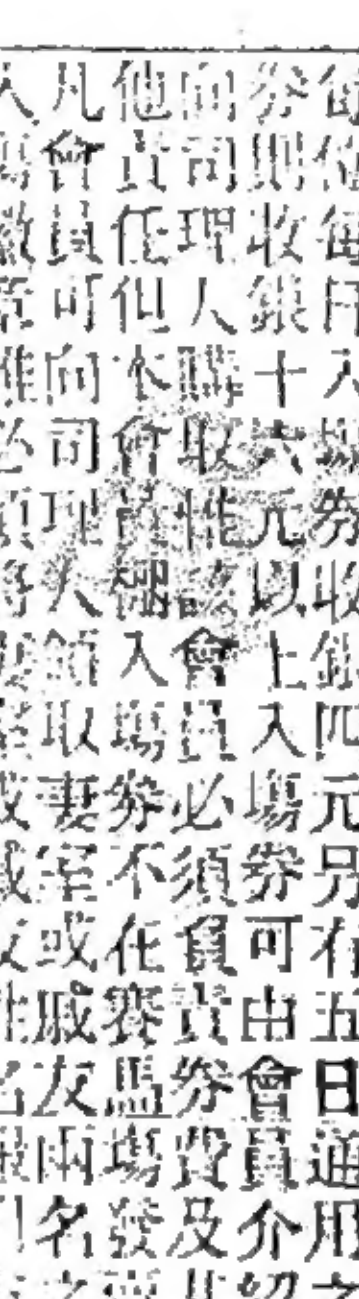 每位每日入場券收銀四元另有五日通用之
券則收銀十六元以上入場券可由會員介紹
向司理人購取惟該會員必須負責券費及其
他責任但本會棚入場券不在賽馬場發
凡會員可向司理人領取妻室或戚友兩名之
人 徽章惟必須將